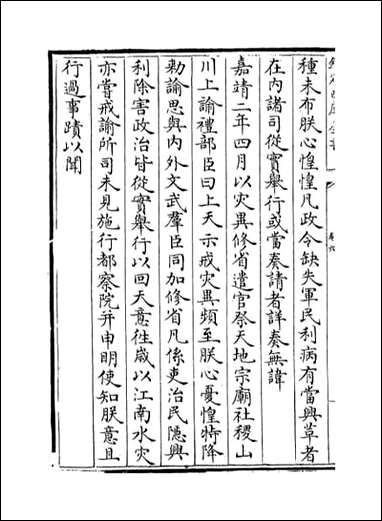 欽定四庫全書
卷六
種未布朕心惶惶凡政令缺失軍民利病有當興革者
在内諸司從實舉行或當奏請者詳奏無諱
嘉靖二年四月以灾異修省遣官祭天地宗廟社稷山
川上諭禮部臣曰上天示戒灾異頻至朕心憂惶特降
勅諭思與内外文武羣臣同加修省凡係吏治民隱興
利除害政治皆從實舉行以回天意徃歲以江南水灾
亦嘗戒諭所司未見施行都察院并申明使知朕意且
行過事蹟以聞